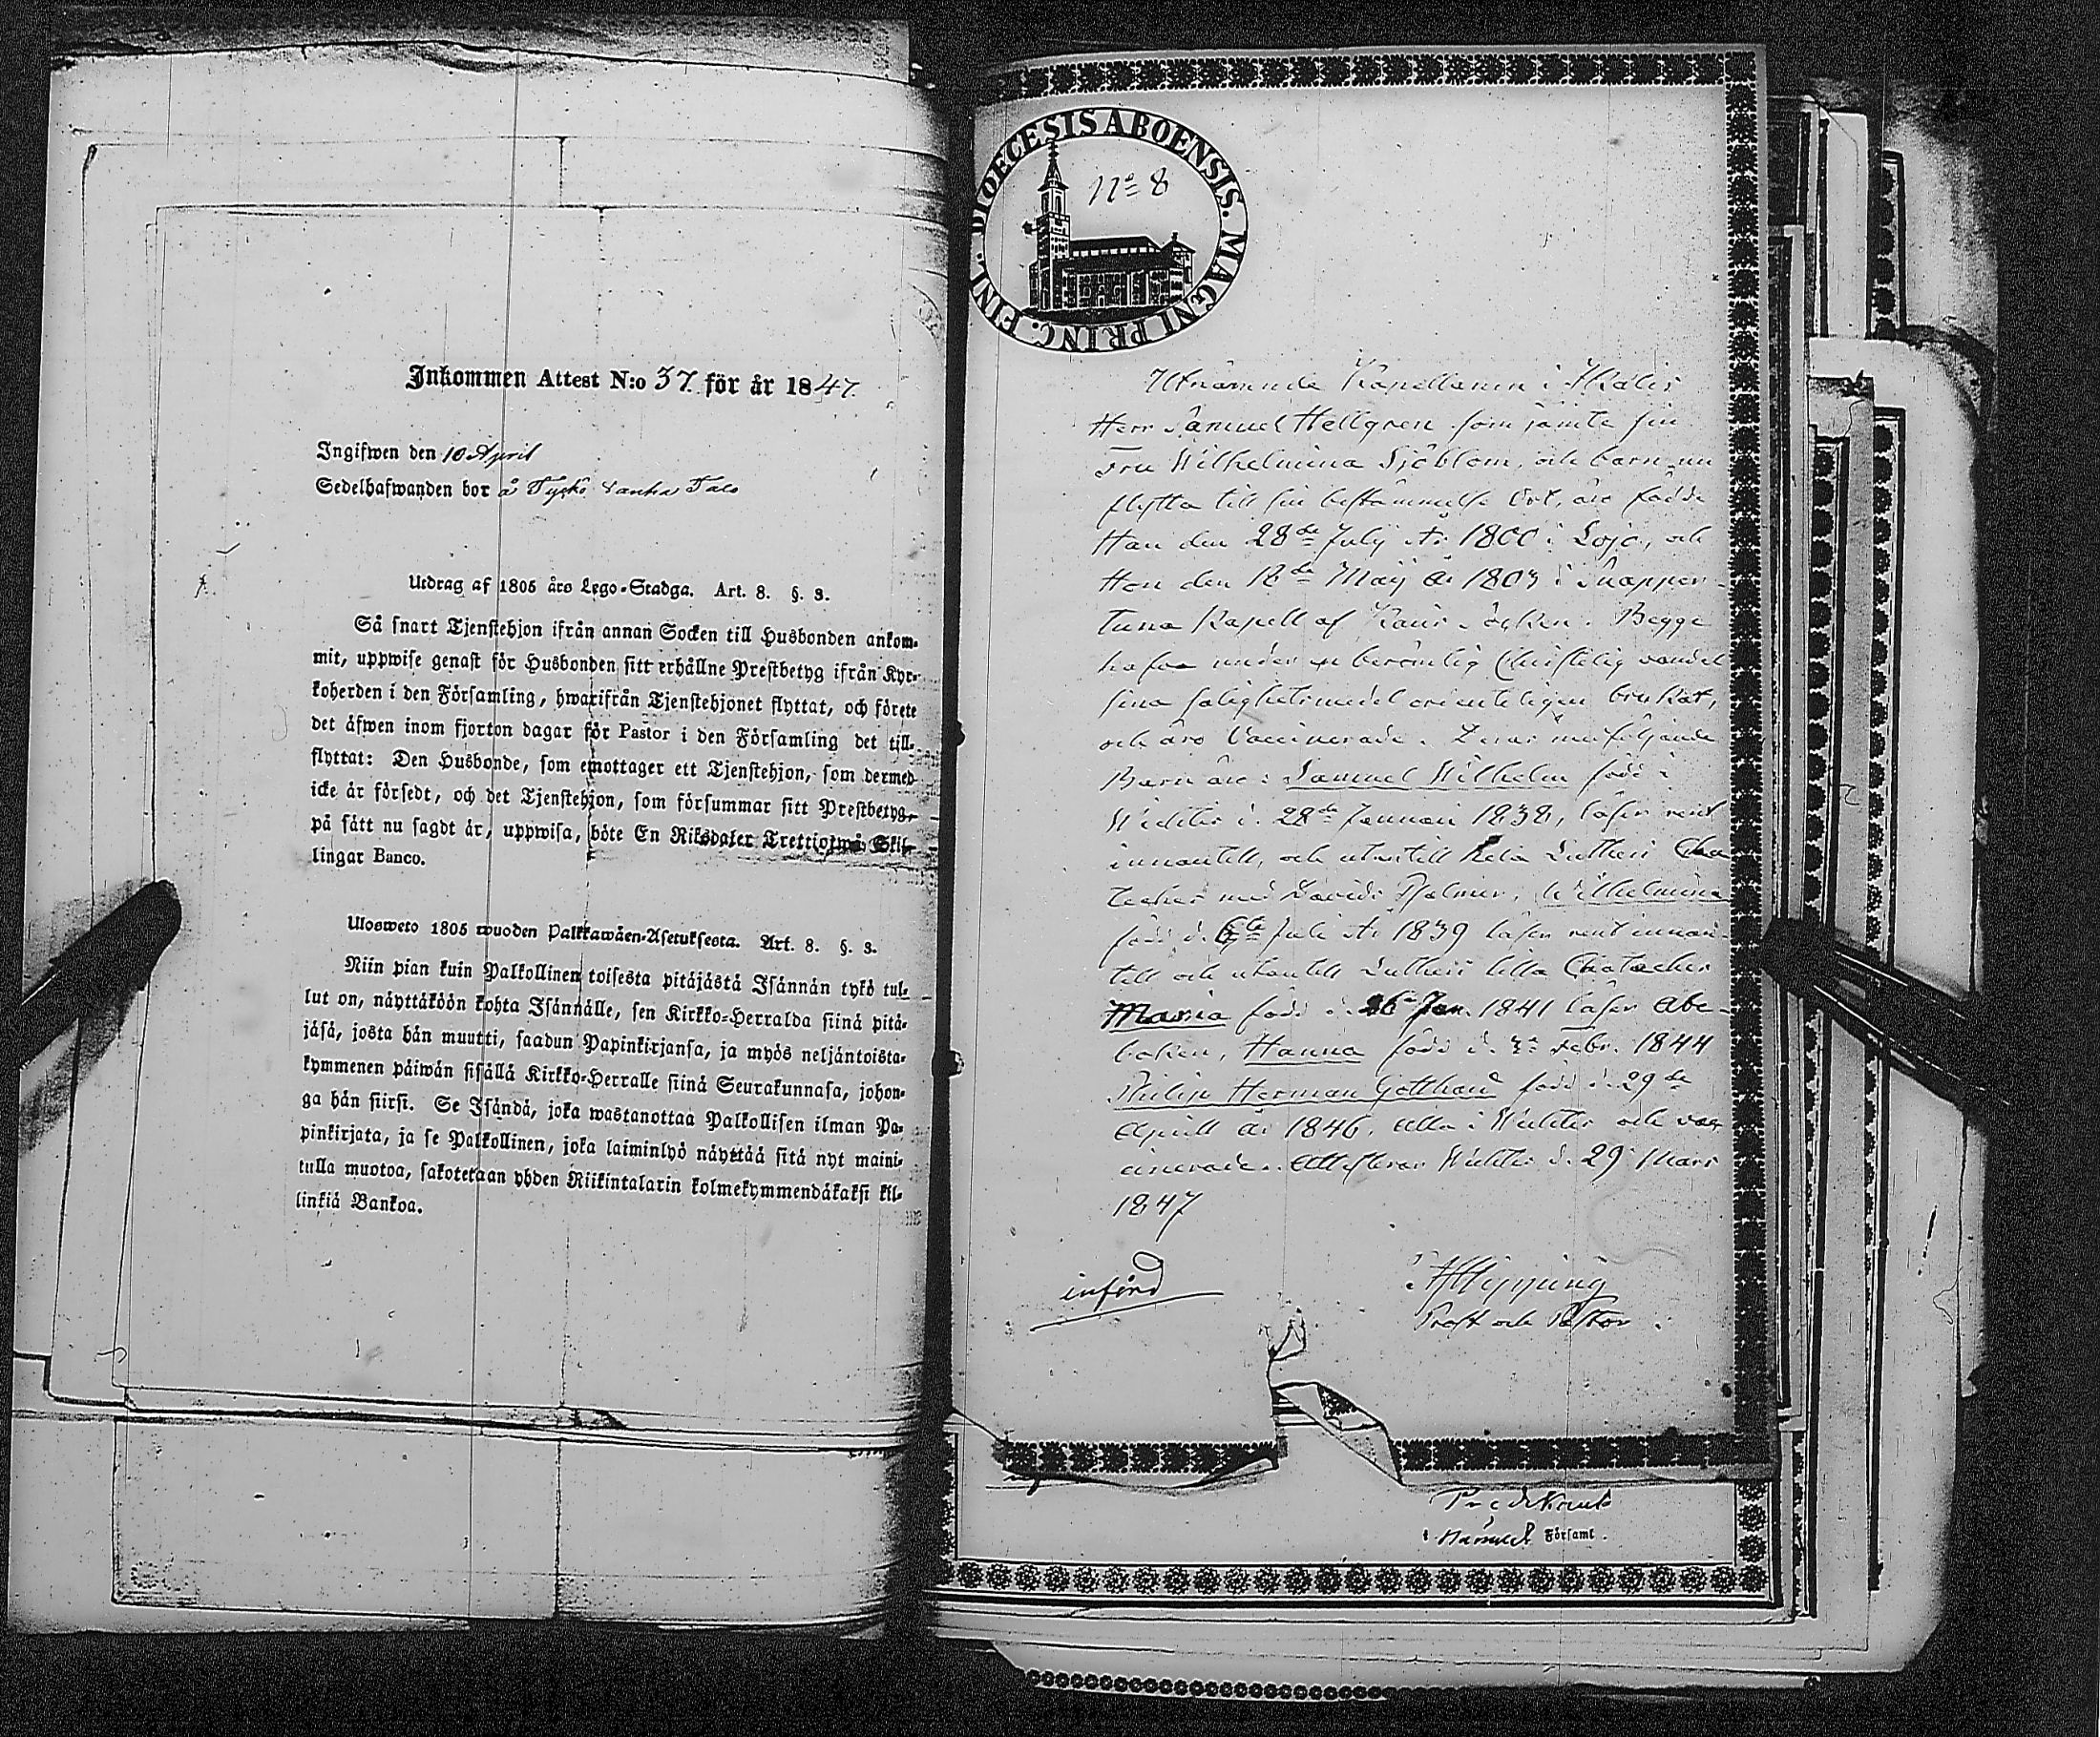 Inkommen Attest N:o 37. för år 1847.
Ingifwen den 10 April
Sedelhafwanden bor å Tyckö
Utdrag af 1805 års Lego-Stadga. Art. 8. §. 3.
Så snart Tjenstehjon ifrån annan Socken till Husbonden ankom-
mit, uppwise genast för Husbonden sitt erhållne Prestbetyg ifrån Kyr-
koherden i den Församling, hwarifrån Tjenstehjonet flyttat, och förete
det äfwen inom fjorton dagar för Pastor i den Församling det till-
flyttat: Den Husbonde, som emottager ett Tjenstehjon, som dermed
icke är försedt, och det Tjenstehjon, som försummar sitt Prestbetyg,
på sätt nu sagdt är, uppwisa, böte En Riksdaler Trettiotwå Skil-
lingar Banco.
Ulosweto 1805 wuoden Palkkawäen-Asetuksesta. Art. 8. §. 3.
Niin pian kuin Palkollinen toisesta pitäjästä Isännän tykö tul-
lut on, näyttäköön kohta Isännälle, sen Kirkko-Herralda siinä pitä-
jäsä, josta hän muutti, saadun Papinkirjansa, ja myös neljäntoista-
kymmenen päiwän sisällä Kirkko-Herralle siinä Seurakunnasa, johon-
ga hän siirsi. Se Isändä, joka wastanottaa Palkollisen ilman Pa-
pinkirjata, ja se Palkollinen, joka laiminlyö näyttää sitä nyt maini-
tulla muotoa, sakotetaan yhden Riikintalarin kolmekymmendäkaksi kil-
linkiä Bankoa.
DIOECESIS ABOENSIS. MAGNI PRINC. FINL.
No 8
Utnämnde Kapellanen i
Herr Samuel Hellgren som jämte sin
Fru Wilhelmina Sjöblom, och barn nu
flytta till sin bestämmelse Ort, äro födde
Han den 28de Julij År 1800 i Lojo, och
Hon den 18de Maij år 1803 i Snappen-
tuna Kapell af Karis Socken. Begge
hafva under en berömlig Christelig vandel
sina salighetsmedel ordenteligen brukat,
och äro Vaccinerade. Deras medföljande
Barn äro: Samuel Wilhelm född i
Wichtis d. 28de Januari 1838, läser rent
innantill, och utantill hela Lutheri Cha
teches med Davids Psalmer, Wilhelmina
född d. Juli År 1839 läser rent innan-
till och utantill Lutheri lilla Chateches
Maria född d. 26 Jan. 1841 läser Abc-
boken, Hanna född d. Febr. 1844
Philip Herman Gotthard född d. 29de
April år 1846, alla i Wichtis och vac-
cinerade. Attesterar Wichtis d. 29 Mars
1847
införd
Hipping
Prost och Pastor.
i Församl.